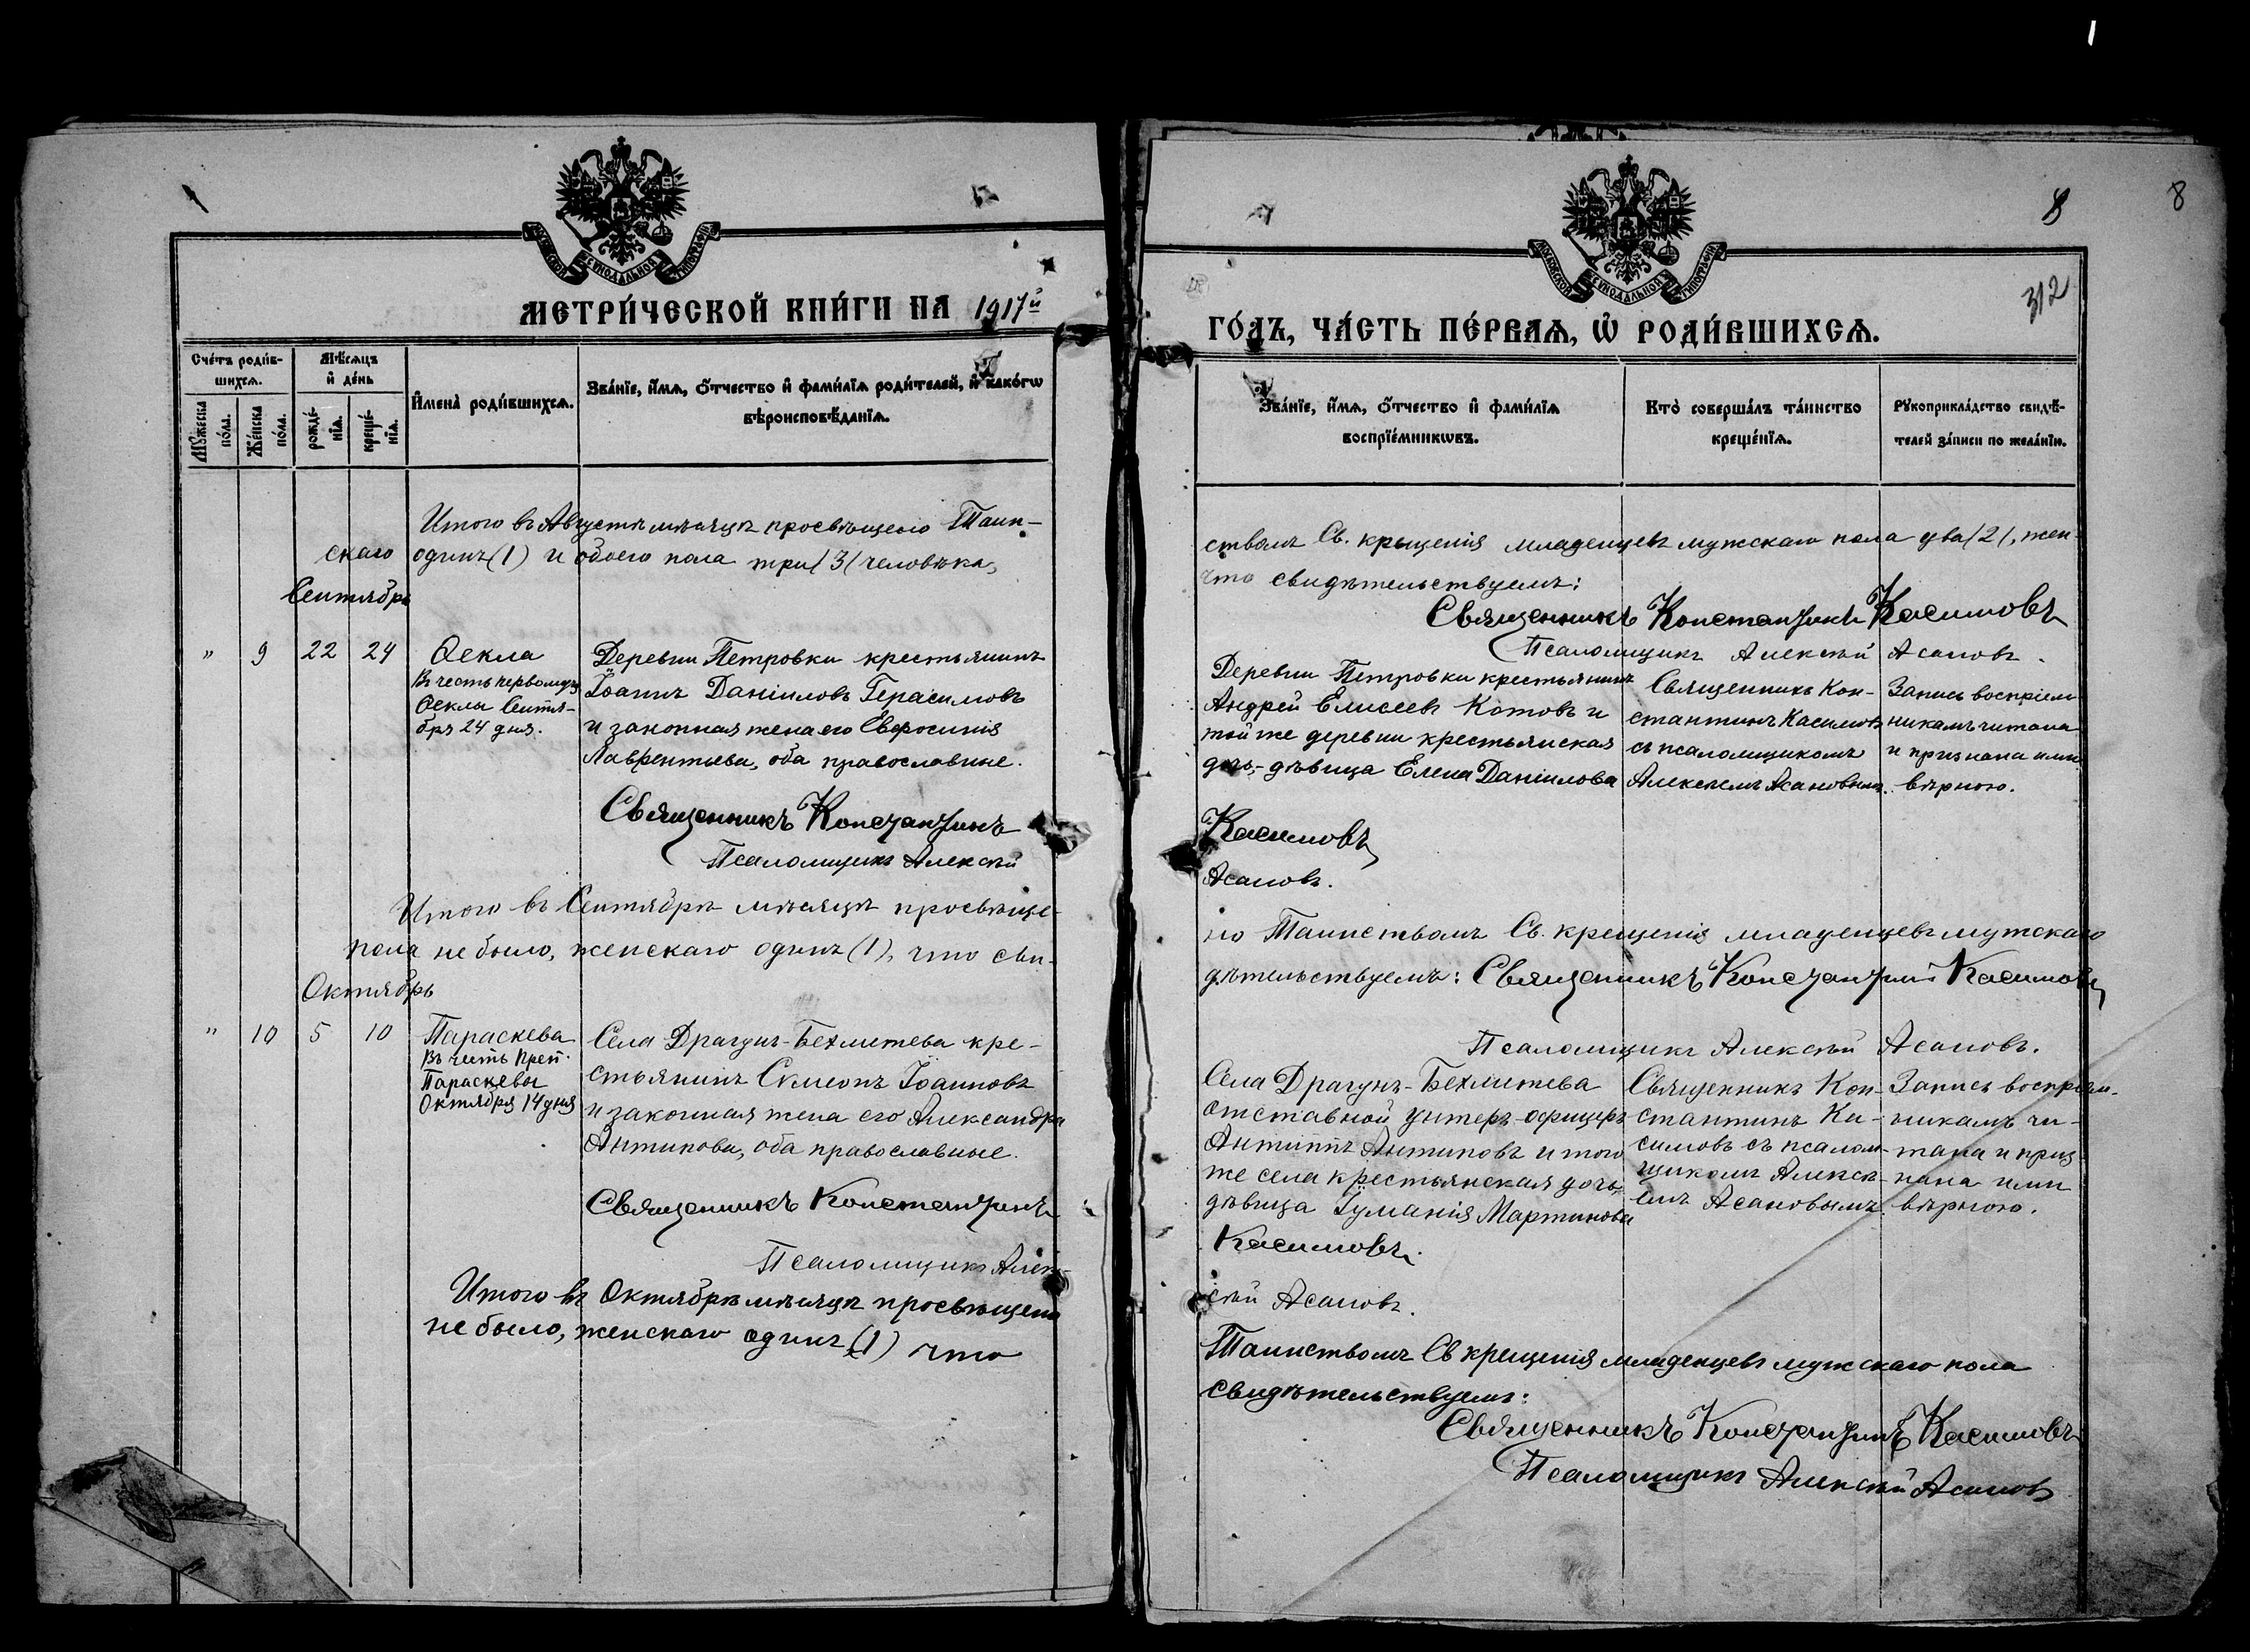 8
8
312
МОСКОВСКОЙ СѴНОДАЛЬНОЙ ТИПОГРАФІИ
МЕТРИ́ЧЕСКОЙ КНИ́ГИ НА 1917й
Сче́тъ роди́в-
шихсѧ.
Мѣ́сѧцъ
и҆ де́нь
Мꙋ́жеска
по́ла.
Же́нска
по́ла.
рожде́-
нїѧ.
креще́-
нїѧ.
И҆мена̀ роди́вшихсѧ.
Зва́нїе, и҆́мѧ, ѻ҆́тчество и҆ фами́лїѧ роди́телей, и҆ како́гѡ
вѣроисповѣ́данїѧ.
Итого въ Августѣ мѣсяцѣ просвѣщено Таин-
скаго одинъ (1) и обоего пола три (3) человѣка,
Сентябрь
" 9 22 24
Ѳекла
Въ честь первомуч.
Ѳеклы Сентя-
бря 24 дня.
Деревни Петровки крестьянинъ
Іоаннъ Даніиловъ Герасимовъ
и законная жена его Евфросинія
Лаврентьева, оба православные.
Священникъ Константинъ
Псаломщикъ Алексѣй
Итого въ Сентябрѣ мѣсяцѣ просвѣще-
пола не было, женскаго одинъ (1), что сви-
Октябрь
" 10 5 10
Параскева
Въ честь Преп.
Параскевы
Октября 14 дня
Села Драгунъ-Бехметева кре-
стьянинъ Симеонъ Іоанновъ
и законная жена его Александра
Антипова, оба православные.
Священникъ Константинъ
Псаломщикъ Алек-
Итого въ Октябрѣ мѣсяцѣ просвѣщено
не было, женскаго одинъ (1) что
МОСКОВСКОЙ СѴНОДАЛЬНОЙ ТИПОГРАФІИ
ГО́ДЪ, ЧА́СТЬ ПЕ́РВАѦ, Ѡ҆ РОДИ́ВШИХСѦ.
Зва́нїе, и҆́мѧ, ѻ҆́тчество и҆ фами́лїѧ
воспрїе́мникѡвъ.
Кто̀ соверша́лъ та́инство
креще́нїѧ.
Рꙋкоприкла́дство свидѣ́-
телей за́писи по жела́нїю.
ствомъ Св. крещенія младенцевъ мужскаго пола два (2), жен-
что свидѣтельствуемъ:
Священникъ Константинъ Касимовъ
Псаломщикъ Алексѣй Асановъ.
Деревни Петровки крестьянинъ
Андрей Елисеевъ Котовъ и
той же деревни крестьянская
дочь-дѣвица Елена Даніилова
Священникъ Кон-
стантинъ Касимовъ
съ псаломщикомъ
Алексѣемъ Асановымъ.
Запись воспріем-
никамъ читана
и признана ими
вѣрною.
Касимовъ
Асановъ.
но Таинствомъ Св. крещенія младенцевъ мужскаго
дѣтельствуемъ: Священникъ Константинъ Касимовъ
Псаломщикъ Алексѣй Асановъ.
Села Драгунъ-Бехметева
отставной унтеръ-офицеръ
Антипъ Антиповъ и того
же села крестьянская дочь,
дѣвица Іуліанія Мартинова
Священникъ Кон-
стантинъ Ка-
симовъ съ псалом-
щикомъ Алексѣ-
емъ Асановымъ.
Запись воспріем-
никамъ чи-
тана и приз-
нана ими
вѣрною.
Касимовъ.
сѣй Асановъ.
Таинствомъ Св крещенія младенцевъ мужскаго пола
свидѣтельствуемъ:
Священникъ Константинъ Касимовъ
Псаломщикъ Алексѣй Асановъ